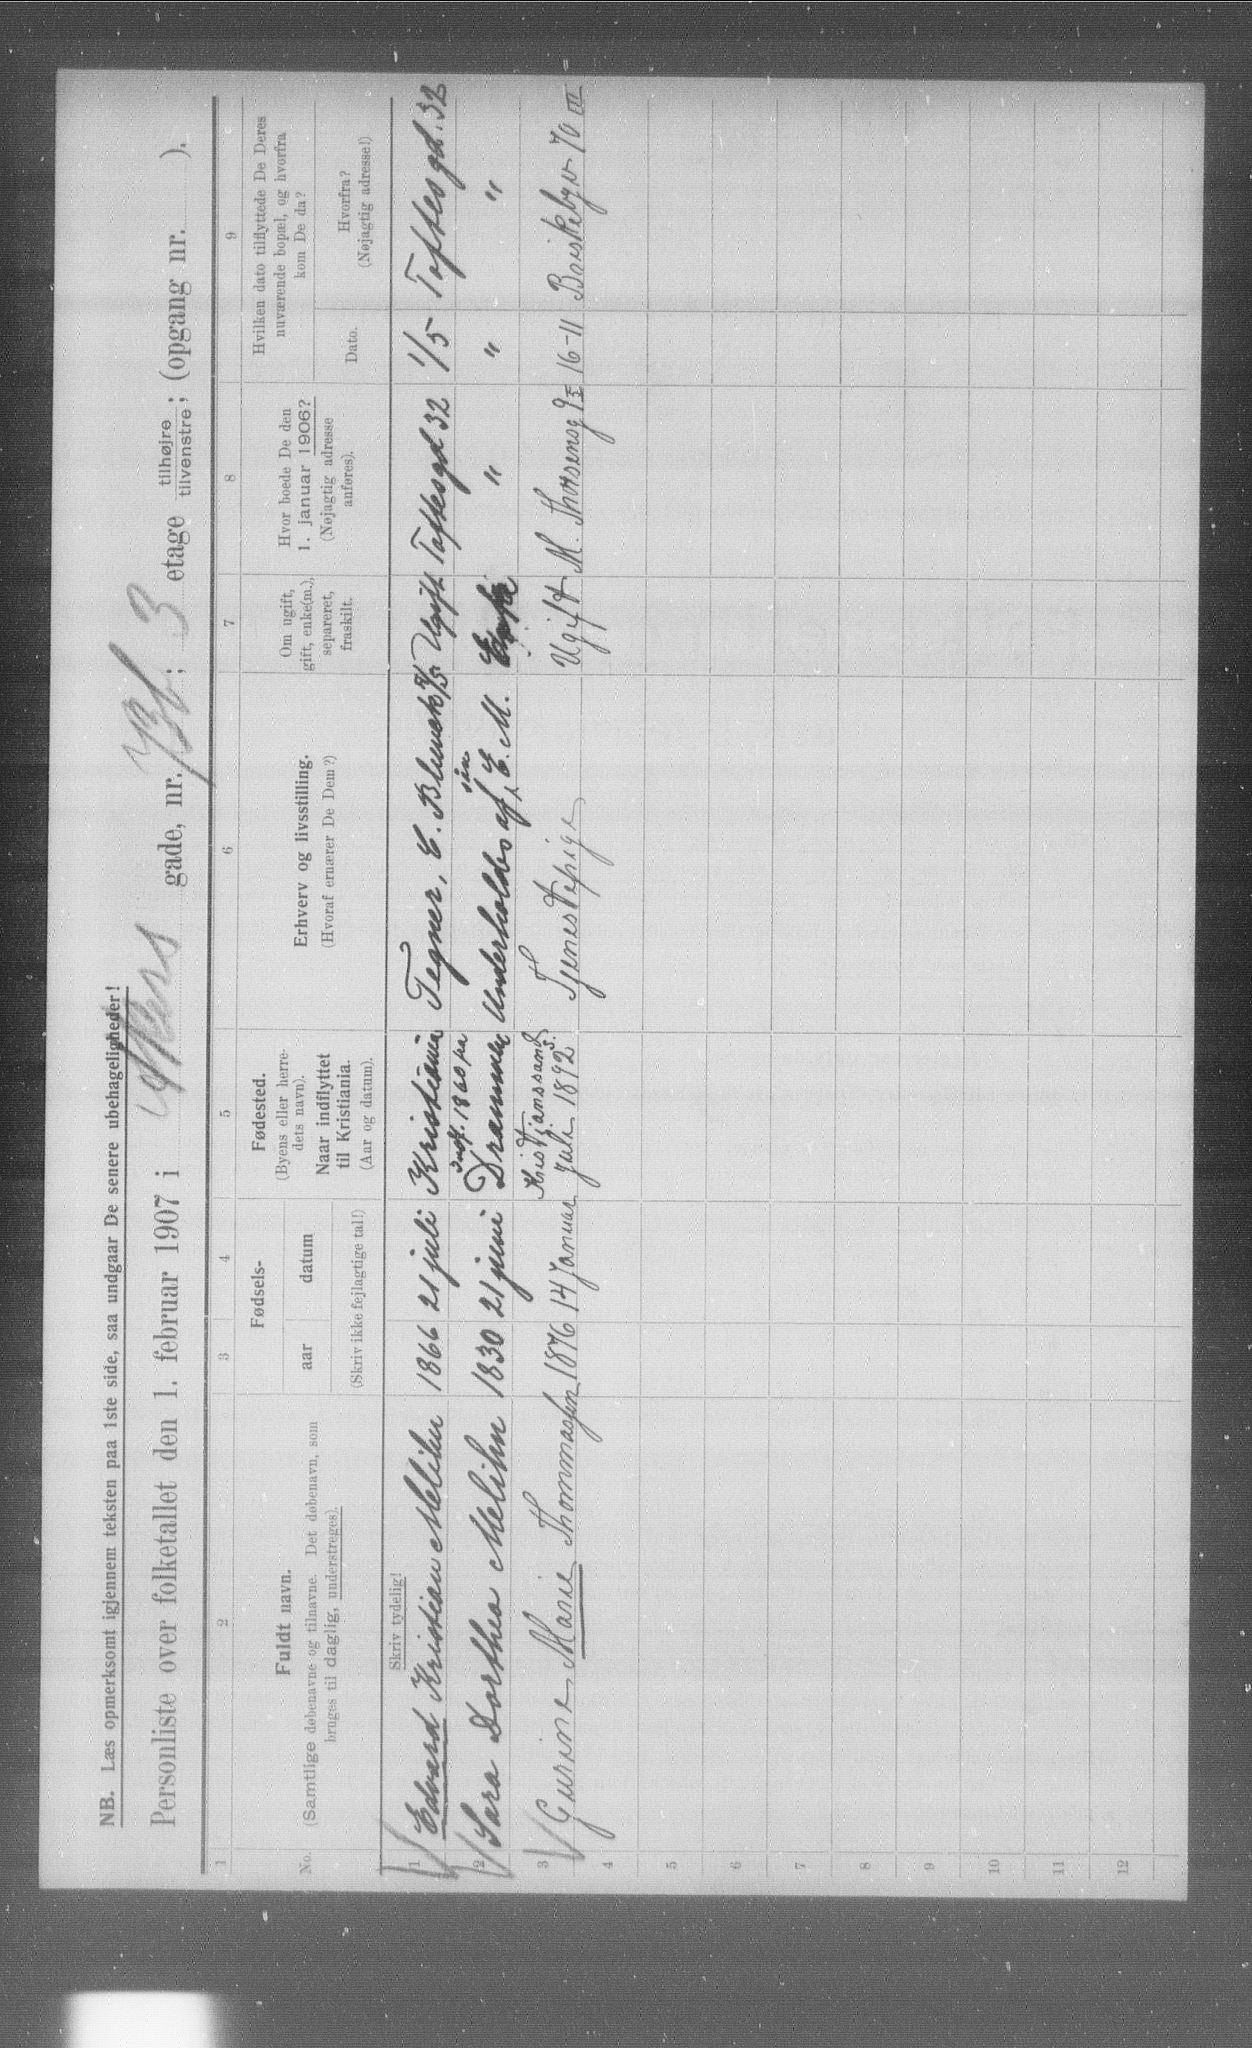 NB. Læs opmerksomt igjennem teksten paa 1ste side, saa undgaar De senere ubehageligheder!
Personliste over folketallet den 1. februar 1907 i Akers gade, nr. 73b; 3 etage tilhøjre tilvenstre; (opgang nr. ).
1 2 3 4 5 6 7 8 9
No.
Fuldt navn.
(Samtlige døbenavne og tilnavne. Det døbenavn, som
bruges til daglig, understreges).
Fødsels-
aar datum
(Skriv ikke fejlagtige tal!)
Fødested.
(Byens eller herre-
dets navn).
Naar indflyttet
til Kristiania.
(Aar og datum).
Erhverv og livsstilling.
(Hvoraf ernærer De Dem?)
Om ugift,
gift, enke(m.),
separeret,
fraskilt.
Hvor boede De den
1. januar 1906?
(Nøjagtig adresse
anføres).
Hvilken dato tilflyttede De Deres
nuværende bopæl, og hvorfra
kom De da?
Dato.
Hvorfra?
(Nøjagtig adresse!)
Skriv tydelig!
1 Edvard Kristian Melihn 1866 21 juli Kristiania Tegner, Ugift Toftesgd 32 1/5 Toftesgd. 32
indf. 1860 fra
2 Sara Dorthea Melihn 1830 21 juni Drammen Underholdes af sin E. M. Enke " " "
Kristjanssand
3 Gurine Marie Thommassen 1876 14 Januar Juli 1892 Tjenestepige Ugift M. Thorsensg 9 I 16-11 Briskebyv 70 III
4
5
6
7
8
9
10
11
12